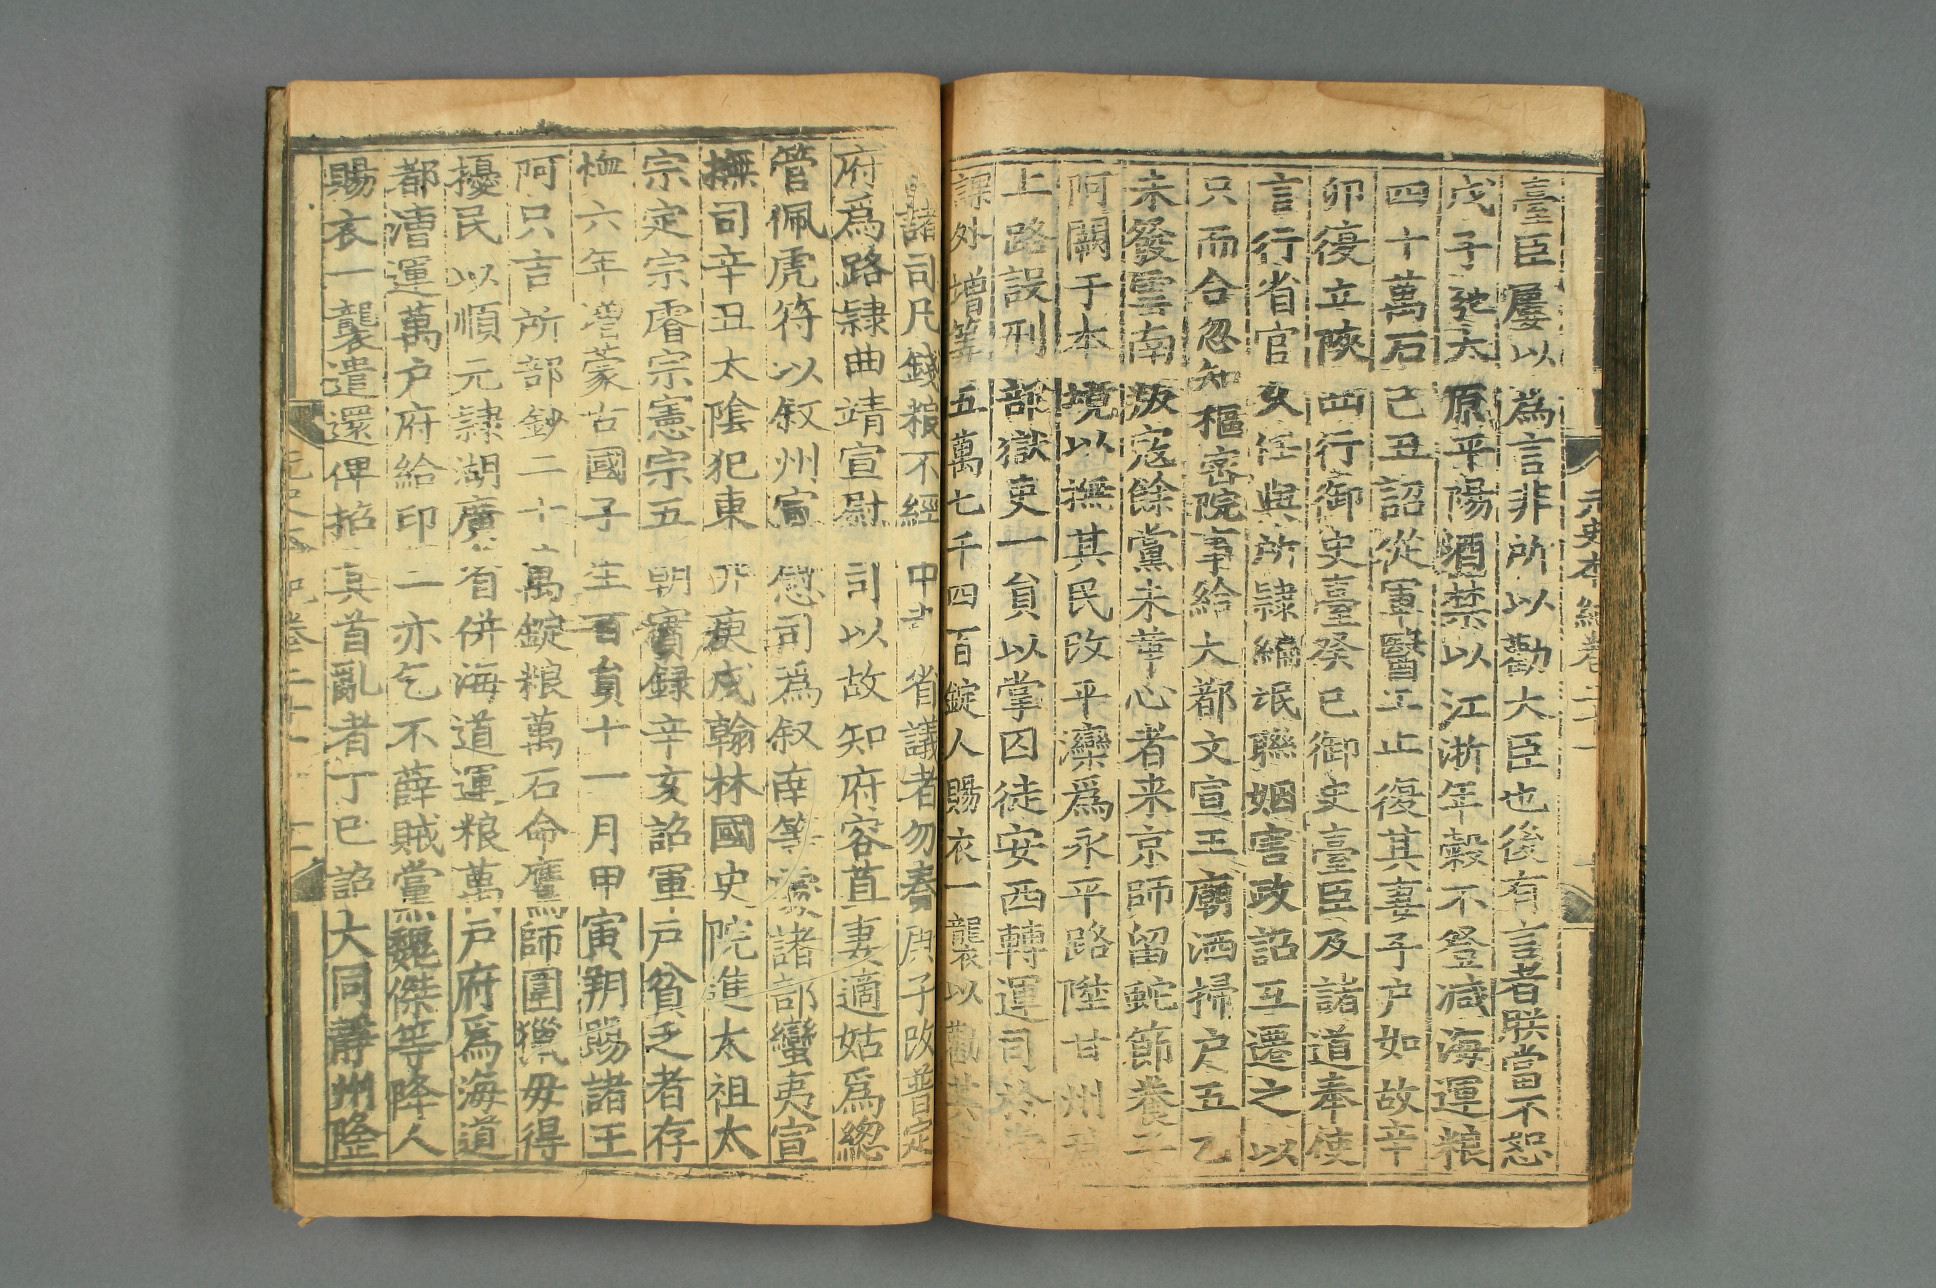 臺臣屢以爲言非所以勸大臣也後有言者朕當不恕
戊子弛太原平陽酒禁以江浙年穀不登减海運粮
四十萬石己丑詔從軍醫工止復其妻子戶如故辛
卯復立陝西行御史臺癸巳御史臺臣及諸道奉使
言行省官久任與所隷編氓聯姻害政詔互遷之以
只而合忽知樞密院事給大都文宣王廟洒掃户五乙
未發雲南叛寇餘黨未革心者来京師留蛇節養子
阿闕于本境以撫其民改平灤爲永平路陞甘州爲
上路設刑部獄吏一貟以掌囚徒安西轉運司於常
課外增筭五萬七千四百錠人賜衣一襲以勸其
諸司凡錢粮不經中書省議者勿奏庚子改普定
府爲路隷曲靖宣慰司以故知府容苴妻適姑爲緫
管佩虎符以叙州宣慰司爲叙南等處諸部蠻夷宣
撫司辛丑太陰犯東井庚戌翰林國史院進太祖太
宗定宗睿宗憲宗五朝實録辛亥詔軍户貧乏者存
恤六年增蒙古國子生百貟十一月甲寅朔賜諸王
阿只吉所部鈔二十萬錠粮萬石命鷹師圍獵毋得
擾民以順元隷湖廣省併海道運粮萬戶府爲海道
都漕運萬户府給印二亦乞不薛賊黨魏傑等降人
賜衣一襲遣還俾招其首亂者丁巳詔大同静州隆
元史本紀卷二十一